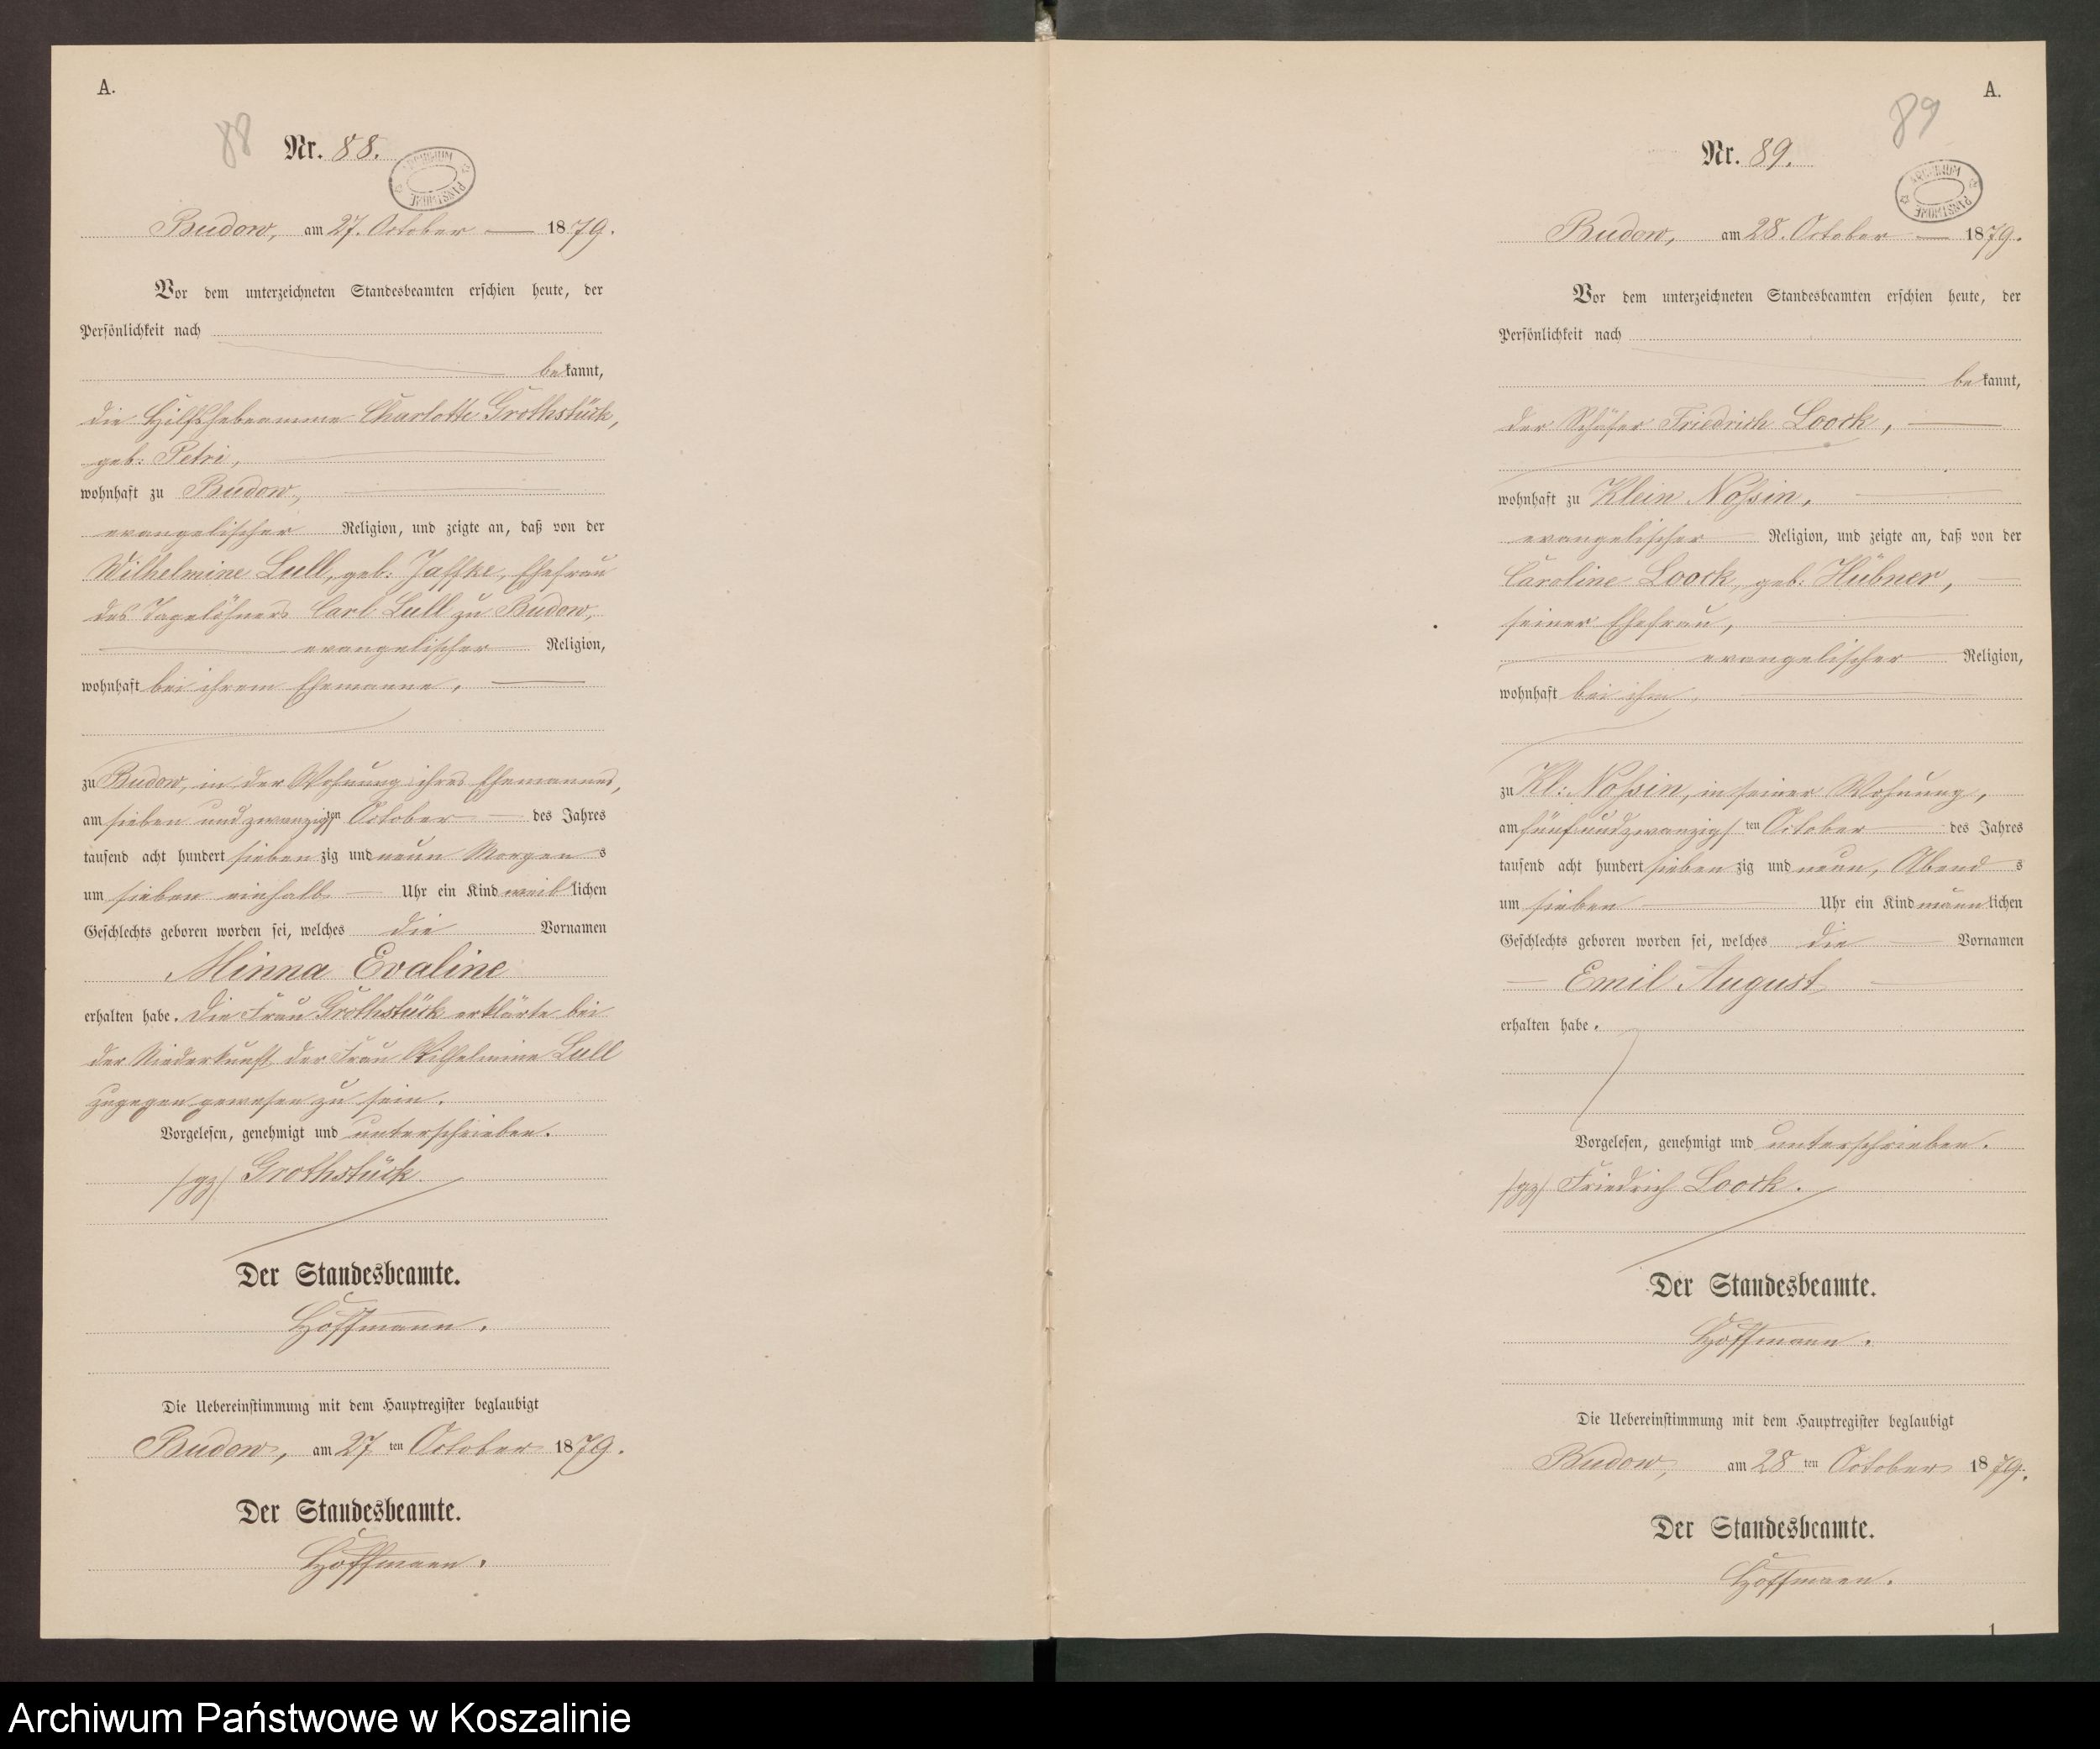 A.
88
Nr. 88.
ARCHIWUM PAŃSTWOWE
Budow, am 27. October 1879.
Vor dem unterzeichneten Standesbeamten erschien heute, der
Persönlichkeit nach
bekannt,
die Hilfshebeamme Charlotte Grothstück,
geb: Petri,
wohnhaft zu Budow,
evangelischer Religion, und zeigte an, daß von der
Wilhelmine Lull, geb: Jaffke, Ehefrau
des Tagelöhners Carl Lull zu Budow,
evangelischer Religion,
wohnhaft bei ihrem Ehemanne,
zu Budow, in der Wohnung ihres Ehemannes,
am sieben und zwanzigsten October des Jahres
tausend acht hundert siebenzig und neun Morgens
um sieben einhalb Uhr ein Kind weiblichen
Geschlechts geboren worden sei, welches die Vornamen
Minna Evaline
erhalten habe. Die Frau Grothstück erklärte bei
der Niederkunft der Frau Wilhelmine Lull
zugegen gewesen zu sein.
Vorgelesen, genehmigt und unterschrieben.
/gz/ Grothstück
Der Standesbeamte.
Hoffmann.
Die Uebereinstimmung mit dem Hauptregister beglaubigt
Budow, am 27 ten October 1879.
Der Standesbeamte.
Hoffmann.
A.
89
Nr. 89.
ARCHIWUM PAŃSTWOWE
Budow, am 28. October 1879.
Vor dem unterzeichneten Standesbeamten erschien heute, der
Persönlichkeit nach
bekannt,
der Schäfer Friedrich Loock,
wohnhaft zu Klein Nossin,
evangelischer Religion, und zeigte an, daß von der
Caroline Loock, geb: Hübner,
seiner Ehefrau,
evangelischer Religion,
wohnhaft bei ihm,
zu Kl: Nossin, in seiner Wohnung,
am fünfundzwanzigsten October des Jahres
tausend acht hundert siebenzig und neun, Abends
um sieben Uhr ein Kind männlichen
Geschlechts geboren worden sei, welches die Vornamen
Emil August
erhalten habe.
Vorgelesen, genehmigt und unterschrieben.
/gz/ Friedrich Loock.
Der Standesbeamte.
Hoffmann.
Die Uebereinstimmung mit dem Hauptregister beglaubigt
Budow, am 28 ten October 1879.
Der Standesbeamte.
Hoffmann.
1
Archiwum Państwowe w Koszalinie